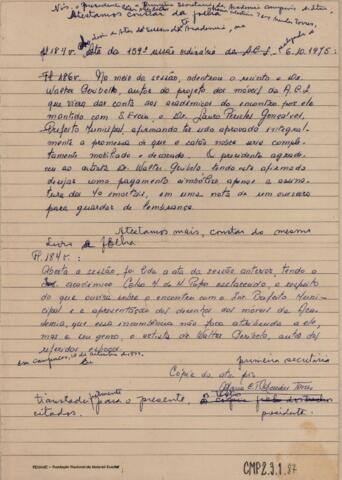 Nós, o Presidente e a Primeira Secretária da Academia Campinense de Letras,
Atestamos constar da folha
do livro de Atas de Sessões da Academia, na
fl 184v. Ata da 159ª sessão ordinária da A.C.L. 6.10.1975:
Fl 186v. No meio da sessão, adentrou o recinto o Dr.
Walter Geribello, autor do projeto dos móveis da A.C.L
que viera dar conta aos acadêmicos do encontro por ele
mantido com S. Excia. o Dr. Lauro Péricles Gonçalves,
Prefeito Municipal, afirmando ter sido aprovada integral
mente a promessa de que o salão nobre seria comple-
tamente mobiliado e decorado. O presidente agrade-
ceu ao artista Dr. Walter Geribelo tendo este afirmado
desejar uma pagamento simbólico, apenas a assina-
tura dos 40 imortais, em uma nota de um cruzeiro
para guardar de lembrança.
Atestamos mais, constar do mesmo
Livro à folha
Fl. 184v.:
Aberta a sessão, foi lida a ata da sessão anterior, tendo o
acadêmico Celso M. de M. Pupo esclarecido, a respeito
do que ouvira sobre o encontro com o Snr. Prefeito Muni-
cipal e a apresentação dos desenhos dos móveis da Aca-
demia, que essa incumbência não fora atribuida a ele,
mas a seu genro, o artista de Walter Geribello, autor dos
referidos esboços.
em Campinas, de outubro
primeira secretária
Copiei da ata por
Maria C. T. Mendes Torres
transladamente para o presente,
citados.
presidente.
FENAME – Fundação Nacional de Material Escolar
CMP2.3.1.87